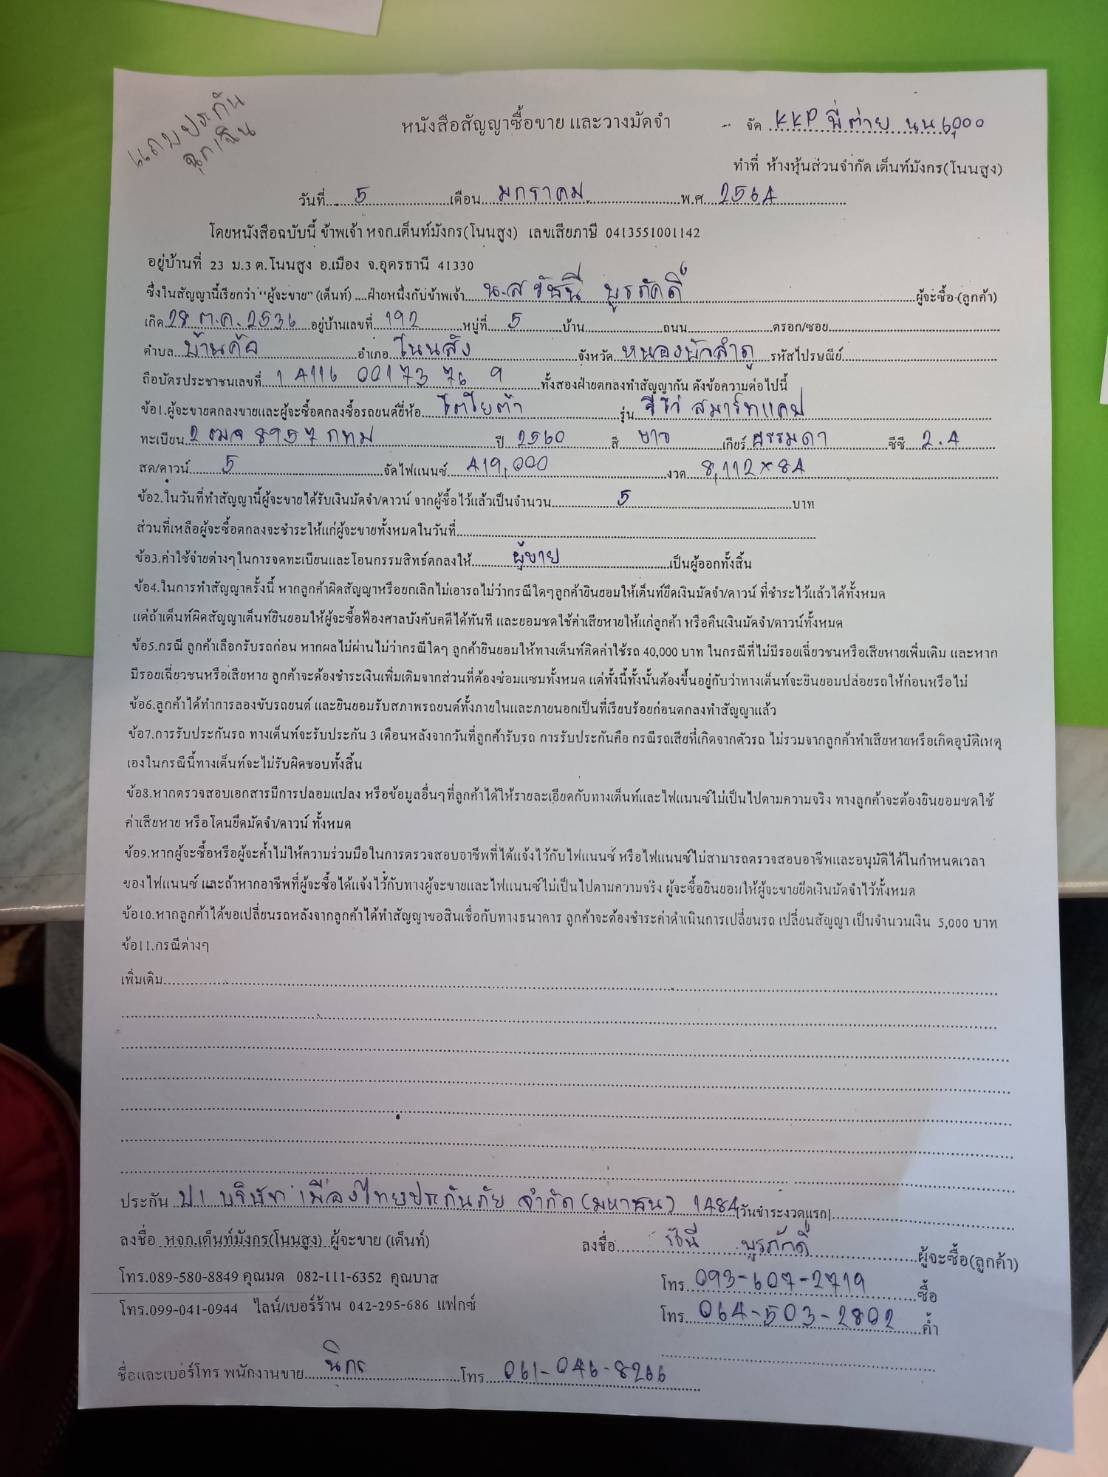 แถมประกัน
ฉุกเฉิน
หนังสือสัญญาซื้อขาย และวางมัดจำ
จัด KKP พี่ต่าย
ทำที่ ห้างหุ้นส่วนจำกัด เต็นท์มังกร(โนนสูง)
วันที่ 5 เดือน มกราคม พ.ศ. 2564
โดยหนังสือฉบับนี้ ข้าพเจ้า หจก.เต็นท์มังกร(โนนสูง) เลขเสียภาษี 0413551001142
อยู่บ้านที่ 23 ม.3 ต.โนนสูง อ.เมือง จ.อุดรธานี 41330
ซึ่งในสัญญานี้เรียกว่า "ผู้จะขาย" (เต็นท์) ....ฝ่ายหนึ่งกับข้าพเจ้า น.ส รัชนี บูรภักดิ์ ผู้จะซื้อ (ลูกค้า)
เกิด 28 ต.ค. 2536 อยู่บ้านเลขที่ 192 หมู่ที่ 5 บ้าน ถนน ตรอก/ซอย
ตำบล บ้านค้อ อำเภอ โนนสัง จังหวัด หนองบัวลำภู รหัสไปรษณีย์
ถือบัตรประชาชนเลขที่ 1 4116 00173 76 9 ทั้งสองฝ่ายตกลงทำสัญญากัน ดังข้อความต่อไปนี้
ข้อ1.ผู้จะขายตกลงขายและผู้จะซื้อตกลงซื้อรถยนต์ยี่ห้อ โตโยต้า รุ่น รีโว่ สมาร์ทแคป
ทะเบียน 2 ฒฉ 8957 กทม ปี 2560 สี ขาว เกียร์ ธรรมดา ซีซี 2.4
สด/ดาวน์ 5 จัดไฟแนนซ์ 419,000 งวด 8,112 x 84
ข้อ2.ในวันที่ทำสัญญานี้ผู้จะขายได้รับเงินมัดจำ/ดาวน์ จากผู้ซื้อไว้แล้วเป็นจำนวน 5 บาท
ส่วนที่เหลือผู้จะซื้อตกลงจะชำระให้แก่ผู้จะขายทั้งหมดในวันที่
ข้อ3.ค่าใช้จ่ายต่างๆในการจดทะเบียนและโอนกรรมสิทธ์ตกลงให้ ผู้ขาย เป็นผู้ออกทั้งสิ้น
ข้อ4.ในการทำสัญญาครั้งนี้ หากลูกค้าผิดสัญญาหรือยกเลิกไม่เอารถไม่ว่ากรณีใดๆลูกค้ายินยอมให้เต็นท์ยึดเงินมัดจำ/ดาวน์ ที่ชำระไว้แล้วได้ทั้งหมด
แต่ถ้าเต็นท์ผิดสัญญาเต็นท์ยินยอมให้ผู้จะซื้อฟ้องศาลบังคับคดีได้ทันที และยอมชดใช้ค่าเสียหายให้แก่ลูกค้า หรือคืนเงินมัดจำ/ดาวน์ทั้งหมด
ข้อ5.กรณี ลูกค้าเลือกรับรถก่อน หากผลไม่ผ่านไม่ว่ากรณีใดๆ ลูกค้ายินยอมให้ทางเต็นท์คิดค่าใช้รถ 40,000 บาท ในกรณีที่ไม่มีรอยเฉี่ยวชนหรือเสียหายเพิ่มเติม และหาก
มีรอยเฉี่ยวชนหรือเสียหาย ลูกค้าจะต้องชำระเงินเพิ่มเติมจากส่วนที่ต้องซ่อมแซมทั้งหมด แต่ทั้งนี้ทั้งนั้นต้องขึ้นอยู่กับว่าทางเต็นท์จะยินยอมปล่อยรถให้ก่อนหรือไม่
ข้อ6.ลูกค้าได้ทำการลองขับรถยนต์ และยินยอมรับสภาพรถยนต์ทั้งภายในและภายนอกเป็นที่เรียบร้อยก่อนตกลงทำสัญญาแล้ว
ข้อ7.การรับประกันรถ ทางเต็นท์จะรับประกัน 3 เดือนหลังจากวันที่ลูกค้ารับรถ การรับประกันคือ กรณีรถเสียที่เกิดจากตัวรถ ไม่รวมจากลูกค้าทำเสียหายหรือเกิดอุบัติเหตุ
เองในกรณีนี้ทางเต็นท์จะไม่รับผิดชอบทั้งสิ้น
ข้อ8.หากตรวจสอบเอกสารมีการปลอมแปลง หรือข้อมูลอื่นๆที่ลูกค้าได้ให้รายละเอียดกับทางเต็นท์และไฟแนนซ์ไม่เป็นไปตามความจริง ทางลูกค้าจะต้องยินยอมชดใช้
ค่าเสียหาย หรือโดนยึดมัดจำ/ดาวน์ ทั้งหมด
ข้อ9.หากผู้จะซื้อหรือผู้จะค้ำไม่ให้ความร่วมมือในการตรวจสอบอาชีพที่ได้แจ้งไว้กับไฟแนนซ์ หรือไฟแนนซ์ไม่สามารถตรวจสอบอาชีพและอนุมัติได้ในกำหนดเวลา
ของไฟแนนซ์ และถ้าหากอาชีพที่ผู้จะซื้อได้แจ้งไว้กับทางผู้จะขายและไฟแนนซ์ไม่เป็นไปตามความจริง ผู้จะซื้อยินยอมให้ผู้จะขายยึดเงินมัดจำไว้ทั้งหมด
ข้อ10.หากลูกค้าได้ขอเปลี่ยนรถหลังจากลูกค้าได้ทำสัญญาขอสินเชื่อกับทางธนาคาร ลูกค้าจะต้องชำระค่าดำเนินการเปลี่ยนรถ เปลี่ยนสัญญา เป็นจำนวนเงิน 5,000 บาท
ข้อ11.กรณีต่างๆ
เพิ่มเติม
ประกัน ป1 บริษัท เมืองไทยประกันภัย จำกัด (มหาชน) 1484 (วันชำระงวดแรก)
ลงชื่อ หจก.เต็นท์มังกร(โนนสูง) ผู้จะขาย (เต็นท์) ลงชื่อ รัชนี บูรภักดิ์ ผู้จะซื้อ(ลูกค้า)
โทร.089-580-8849 คุณมด 082-111-6352 คุณบาส โทร 093-607-2719 ซื้อ
โทร.099-041-0944 ไลน์/เบอร์ร้าน 042-295-686 แฟกซ์ โทร 064-503-2802 ค้ำ
ชื่อและเบอร์โทร พนักงานขาย นิกร โทร 061-046-8266